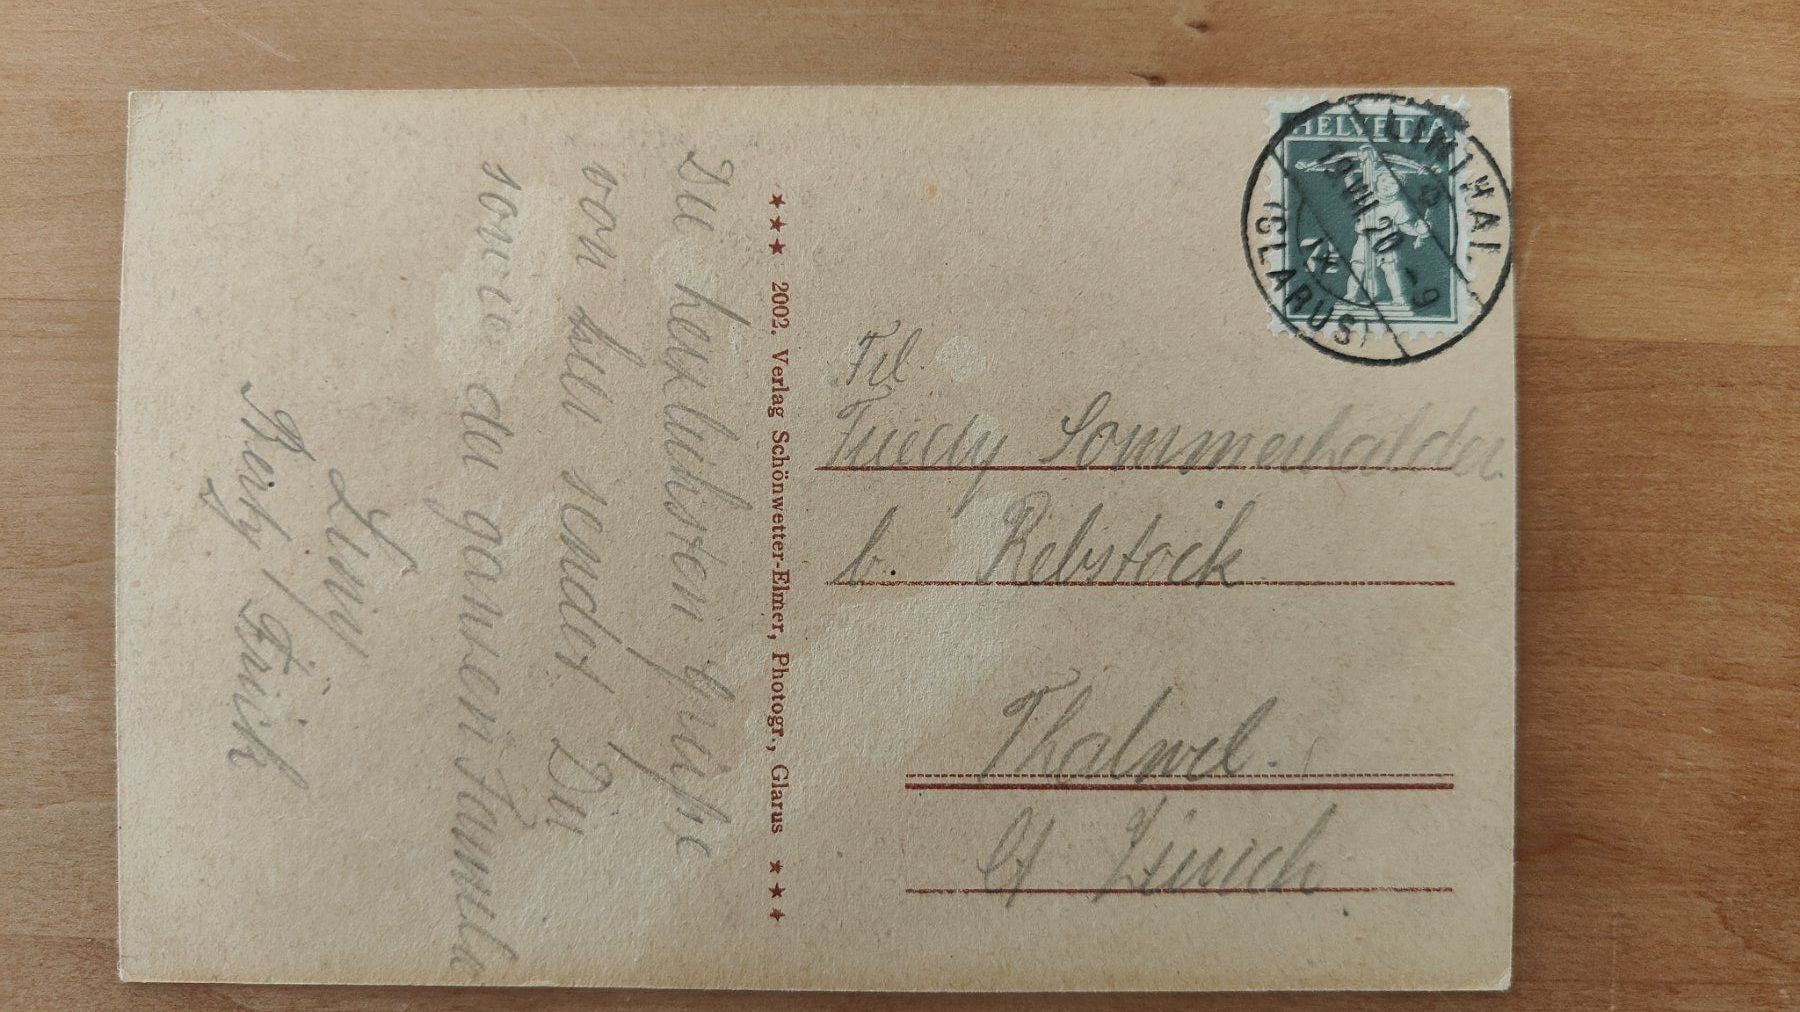 Die herzlichsten Grüsse
von hier sendet Dir
sowie der ganzen Familie
Berty / Zürich
★★★ 2002. Verlag Schönwetter-Elmer, Photogr., Glarus ★★★
HELVETIA
7½
LINTHAL
19.VIII.20.-9
IX
(GLARUS)
Frl.
Friedy Sommerhalder
b. Rebstock
Thalwil.
Ct Zürich